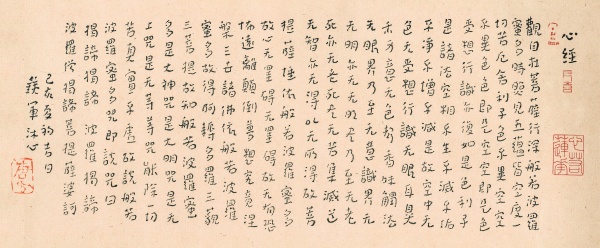 心經
觀自在菩薩行深般若波羅
蜜多時照見五蘊皆空度一
切苦厄舍利子色不異空空
不異色色即是空空即是色
受想行識亦復如是舍利子
是諸法空相不生不滅不垢
不淨不增不減是故空中无
色无受想行識无眼耳鼻
舌身意无色聲香味觸法
无眼界乃至无意識界无
无明亦无无明盡乃至无老
死亦无老死盡无苦集滅道
无智亦无得以无所得故菩
提薩埵依般若波羅蜜多
故心无罣礙无罣礙故无有恐
怖遠離顛倒夢想究竟涅
槃三世諸佛依般若波羅
蜜多故得阿耨多羅三藐
三菩提故知般若波羅蜜
多是大神咒是大明咒是无
上咒是无等等咒能除一切
苦真實不虛故說般若
波羅蜜多咒即說咒曰
揭諦揭諦 波羅揭諦
波羅僧揭諦菩提薩婆訶
己亥夏初吉日
軍沐心